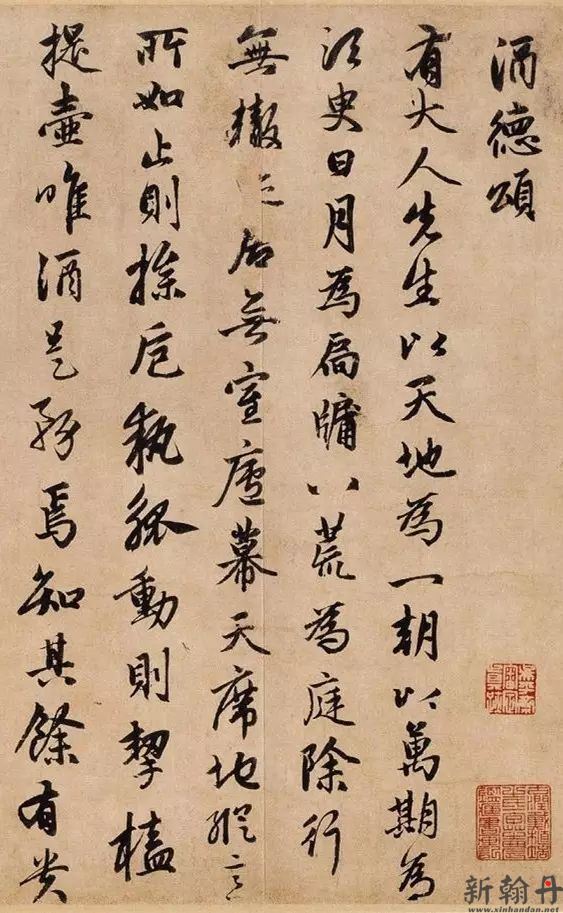 酒德頌
有大人先生以天地為一朝以萬期為
須臾日月為扃牖八荒為庭除行
無轍迹居無室廬幕天席地縱意
所如止則操卮執觚動則挈榼
提壺唯酒是務焉知其餘有貴
新翰丹
www.xinhandan.net